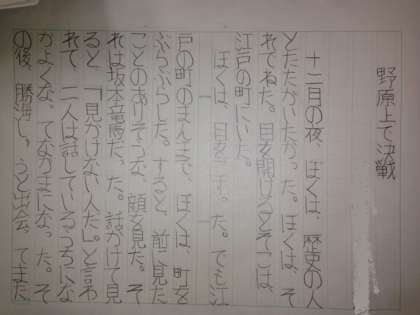 野原上で決戦
十二月の夜、ぼくは、歴史の人
とたたかいたかった。ぼくは、そ
れでねた。目を開けるとそこは、
江戸の町にいた。
ぼくは、目をした。でも江
戸の町のまんまで、ぼくは、町を
ぶらぶらした。すると、前に見た
ことのありそうな、顔を見た。そ
れは坂本竜馬だった。話かけて見
ると、「見かけない人だ。」と言わ
れて、二人は話しているうちにな
かよくな、てなかまになった。そ
の後、勝海しゅうと出会、てまた